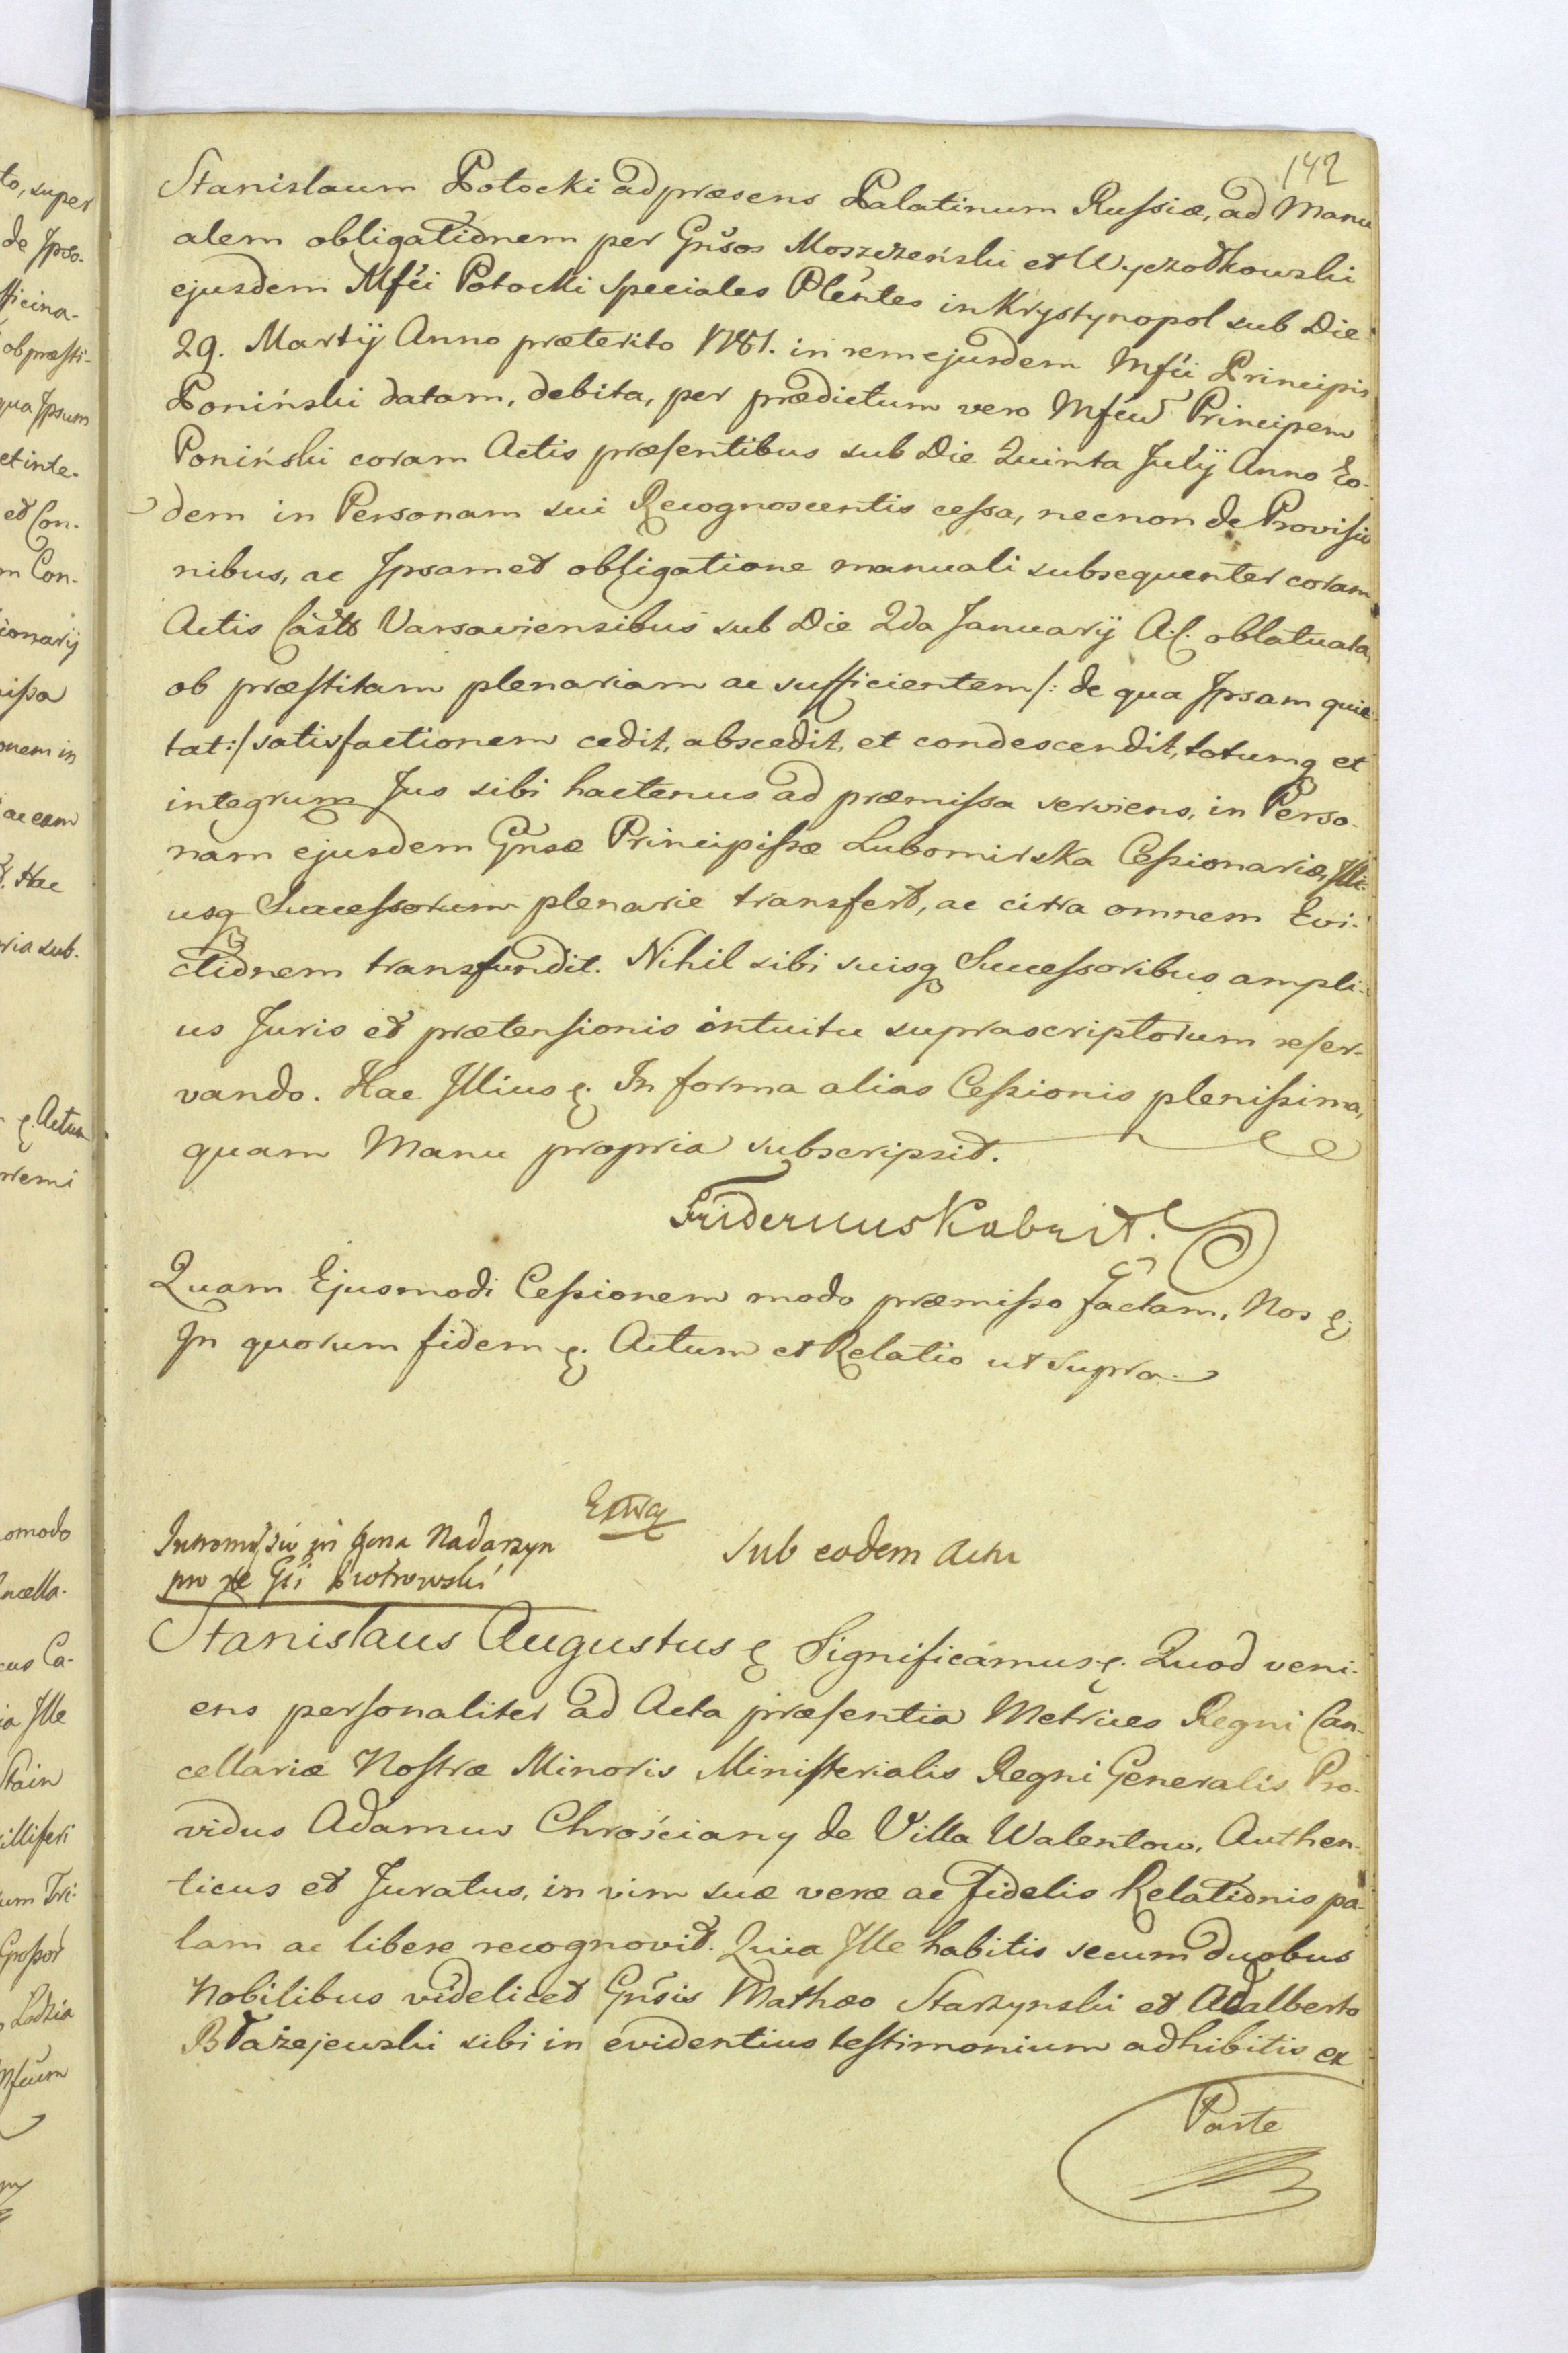 142
Stanislaum Potocki ad præsens Palatinum Russiæ, ad Manu
alem obligationem per Gnsos Moszczeński et Wyczołkowski
ejusdem Mfci Potocki speciales Plentes in Krystynopol sub Die
29. Martij Anno præterito 1781. in rem ejusdem Mfci Principis
Poniński datam, debita, per prædictum vero Mfcum Principem
Poniński coram Actis præsentibus sub Die Quinta Julij Anno Eo-
dem in Personam sui Recognoscentis cessa, necnon de Provisio
nibus, ac Ipsamet obligatione manuali subsequenter coram
Actis Castr Varsaviensibus sub Die 2da Januarij A.C. oblatuata,
ob præstitam plenariam ac sufficientem /: de qua Ipsam quie
tat :/ satisfactionem cedit, abscedit, et condescendit, totumq et
integrum Jus sibi hactenus ad præmissa serviens, in Perso-
nam ejusdem Gnsæ Principissæ Lubomirska Cessionariæ, Illi-
usq Successorum plenarie transfert, ac citra omnem Evi-
ctionem transfundit. Nihil sibi suisq Successoribus ampli-
us Juris et prætensionis intuitu suprascriptorum reser-
vando. Hac Illius &. In forma alias Cessionis plenissima,
quam Manu propria subscripsit.
Fridericus Kabryt.
Quam Ejusmodi Cessionem modo præmisso factam, Nos &
In quorum fidem &. Actum et Relatio ut supra
Intromissio in bona Nadarzyn
pro re Gsi Piotrowski
Extrac
Sub eodem Actu
Stanislaus Augustus & Significamus &. Quod veni-
ens personaliter ad Acta præsentia Metrices Regni Can-
cellariæ Nostræ Minoris Ministerialis Regni Generalis Pro-
vidus Adamus Chrościany de Villa Walentow, Authen-
ticus et Juratus, in vim suæ veræ ac fidelis Relationis pa-
lam ac libere recognovit. Quia Ille habitis secum duobus
Nobilibus videlicet Gnsis Mathæo Starzynski et Adalberto
Błażejewski sibi in evidentius testimonium adhibitis ex
Parte